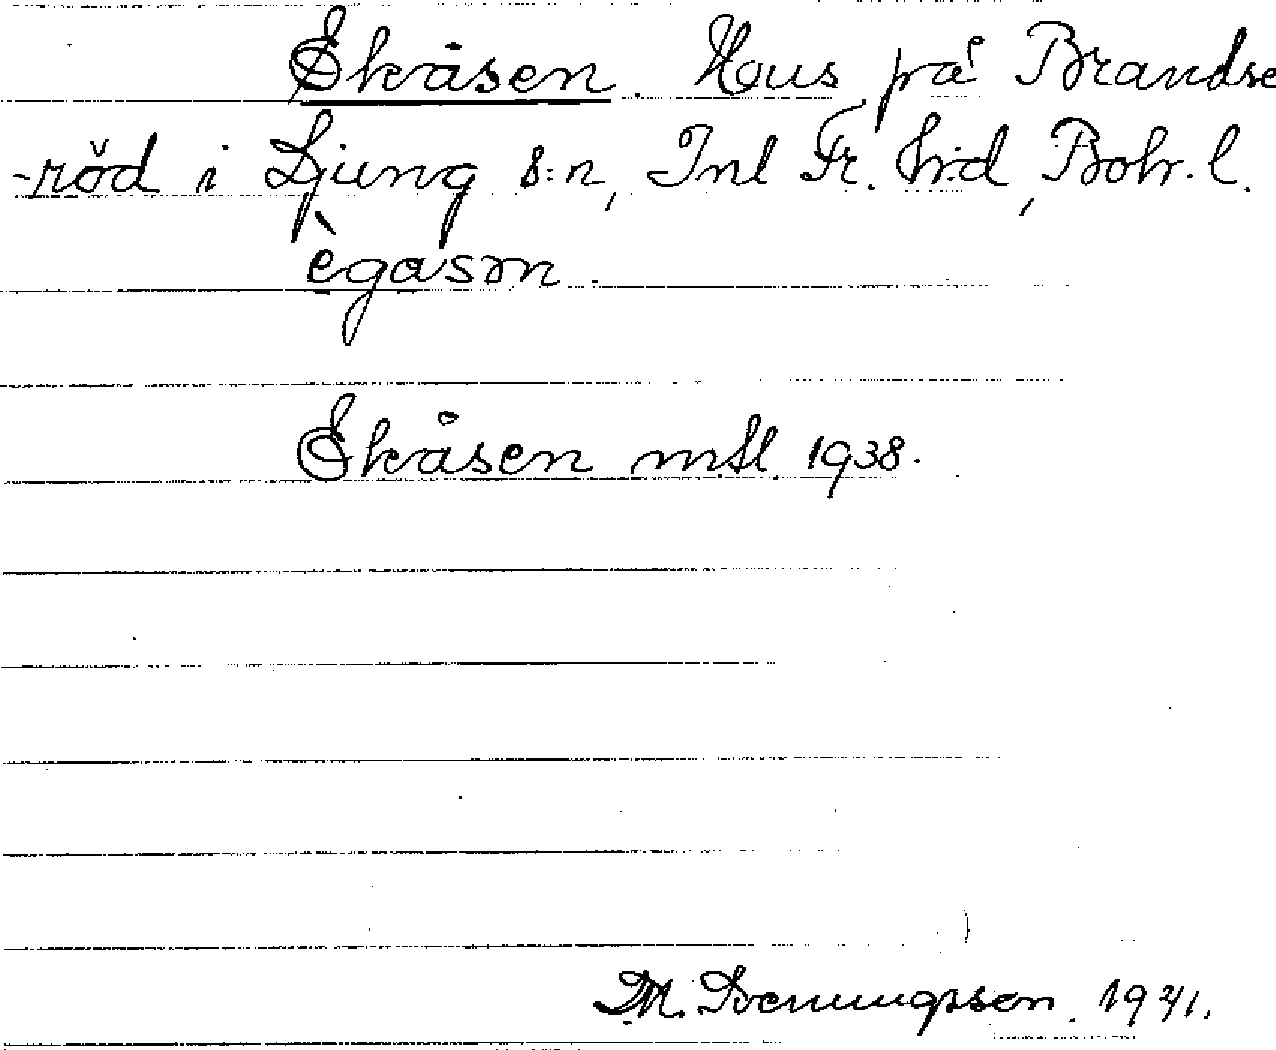 Ekåsen. Hus på Brandse
-röd i Ljung s:n, Inl Fr. h:d, Boh. l.
ègåsɷn.
Ekåsen mtl 1938.
M. Svenungsson. 1941.